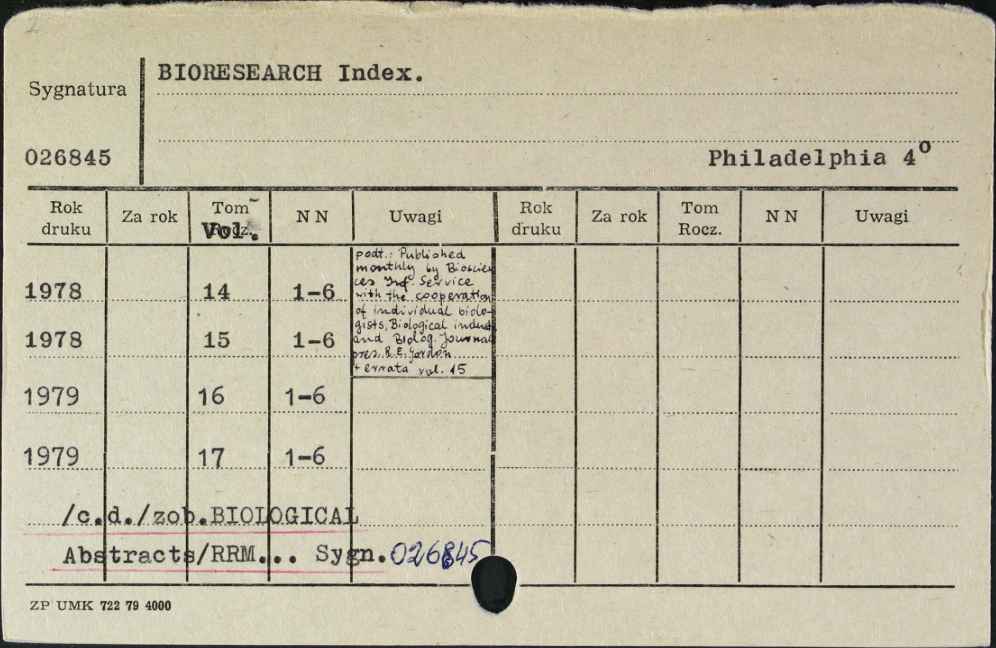 BIORESEARCH Index.
Sygnatura
026845
Philadelphia 4º
Rok druku Za rok Tom Rocz. Vol. NN Uwagi Rok druku Za rok Tom Rocz. NN Uwagi
podt.: Published
monthly by Bioscien
ces Inf. Service
with the cooperation
of individual biolo-
gists, Biological indust
and Biolog. Journal
pres. R.E. Gordon
+ errata vol. 15
1978 14 1-6
1978 15 1-6
1979 16 1-6
1979 17 1-6
/c.d./zob.BIOLOGICAL
Abstracts/RRM... Sygn.026845
ZP UMK 722 79 4000